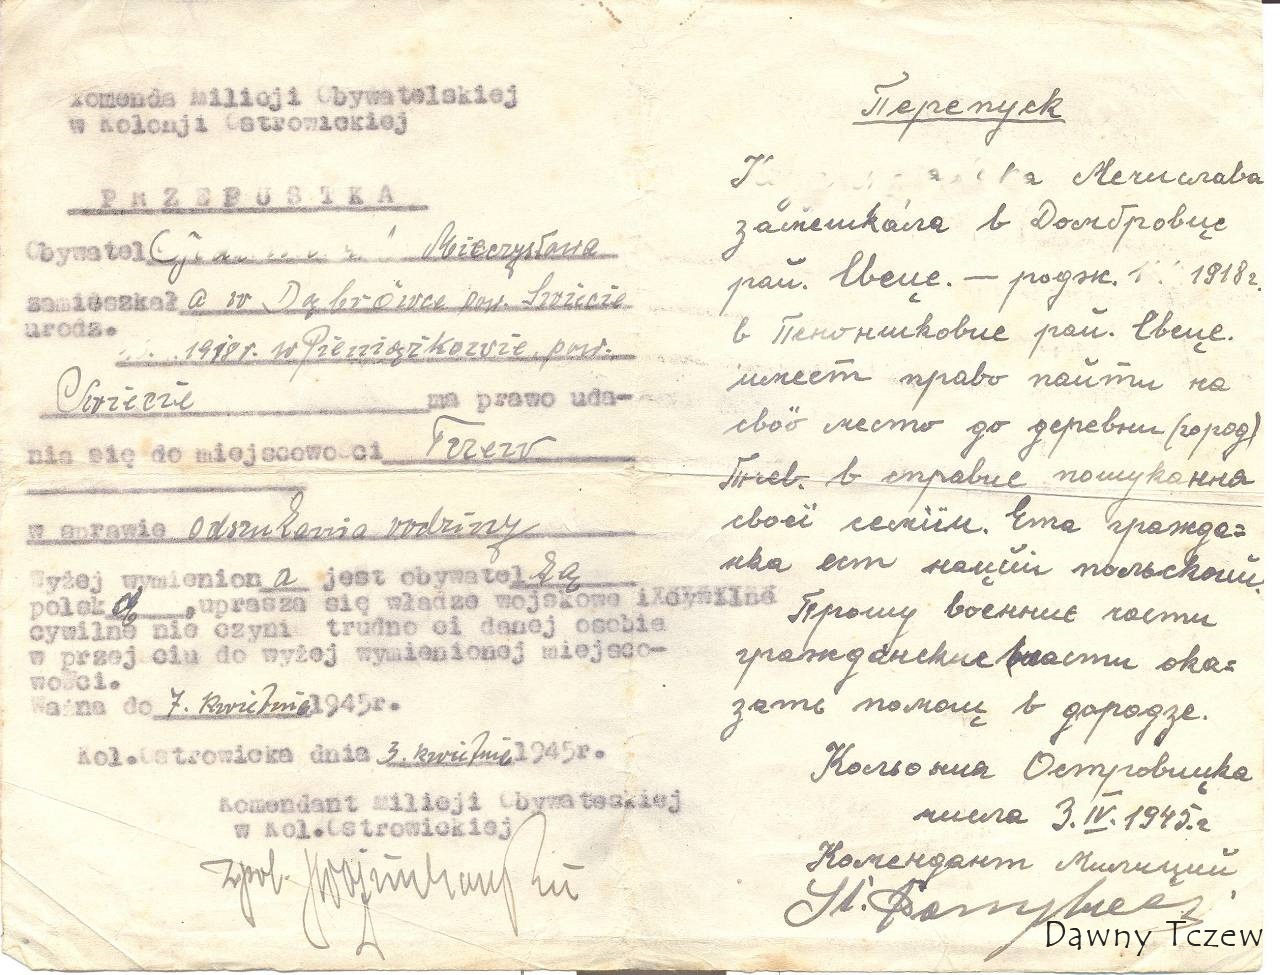 Komenda Milicji Obywatelskiej
w Kolonji Ostrowickiej
PRZEPUSTKA
Obywatel Mieczysława
zamieszkał a w Dąbrówce pow. Świecie
urodz.
1918r. w Pieniążkowie, pow.
Świecie ma prawo uda-
nia się do miejscowości Tczew
w sprawie odszukania rodziny
Wyżej wymienion a jest obywatel ką
polsk ą, uprasza się władze wojskowe i
cywilne nie czyni trudno ci danej osobie
w przej ciu do wyżej wymienionej miejsco-
wości.
Ważna do 7. kwietnia 1945r.
Kol.Ostrowicka dnia 3. kwietnia 1945r.
Komendant Milicji Obywateskiej
w Kol.Ostrowickiej
Перепуск
Мечислава
замешкала в Домбровце
рай. Свеце. — родж. 1918г.
в Пеноншковие рай. Свеце.
имеет право пайти на
своё место до деревни (город)
Тчев. в справие пошуканна
своеї семіи. Ета гражда=
нка ест нацӥи польскоий.
Прошу военние части
гражданские власти ока=
зать помощ в дородзе.
Кольониа Островицка
числа 3.IV.1945.г
Комендант Милиций
Dawny Tczew